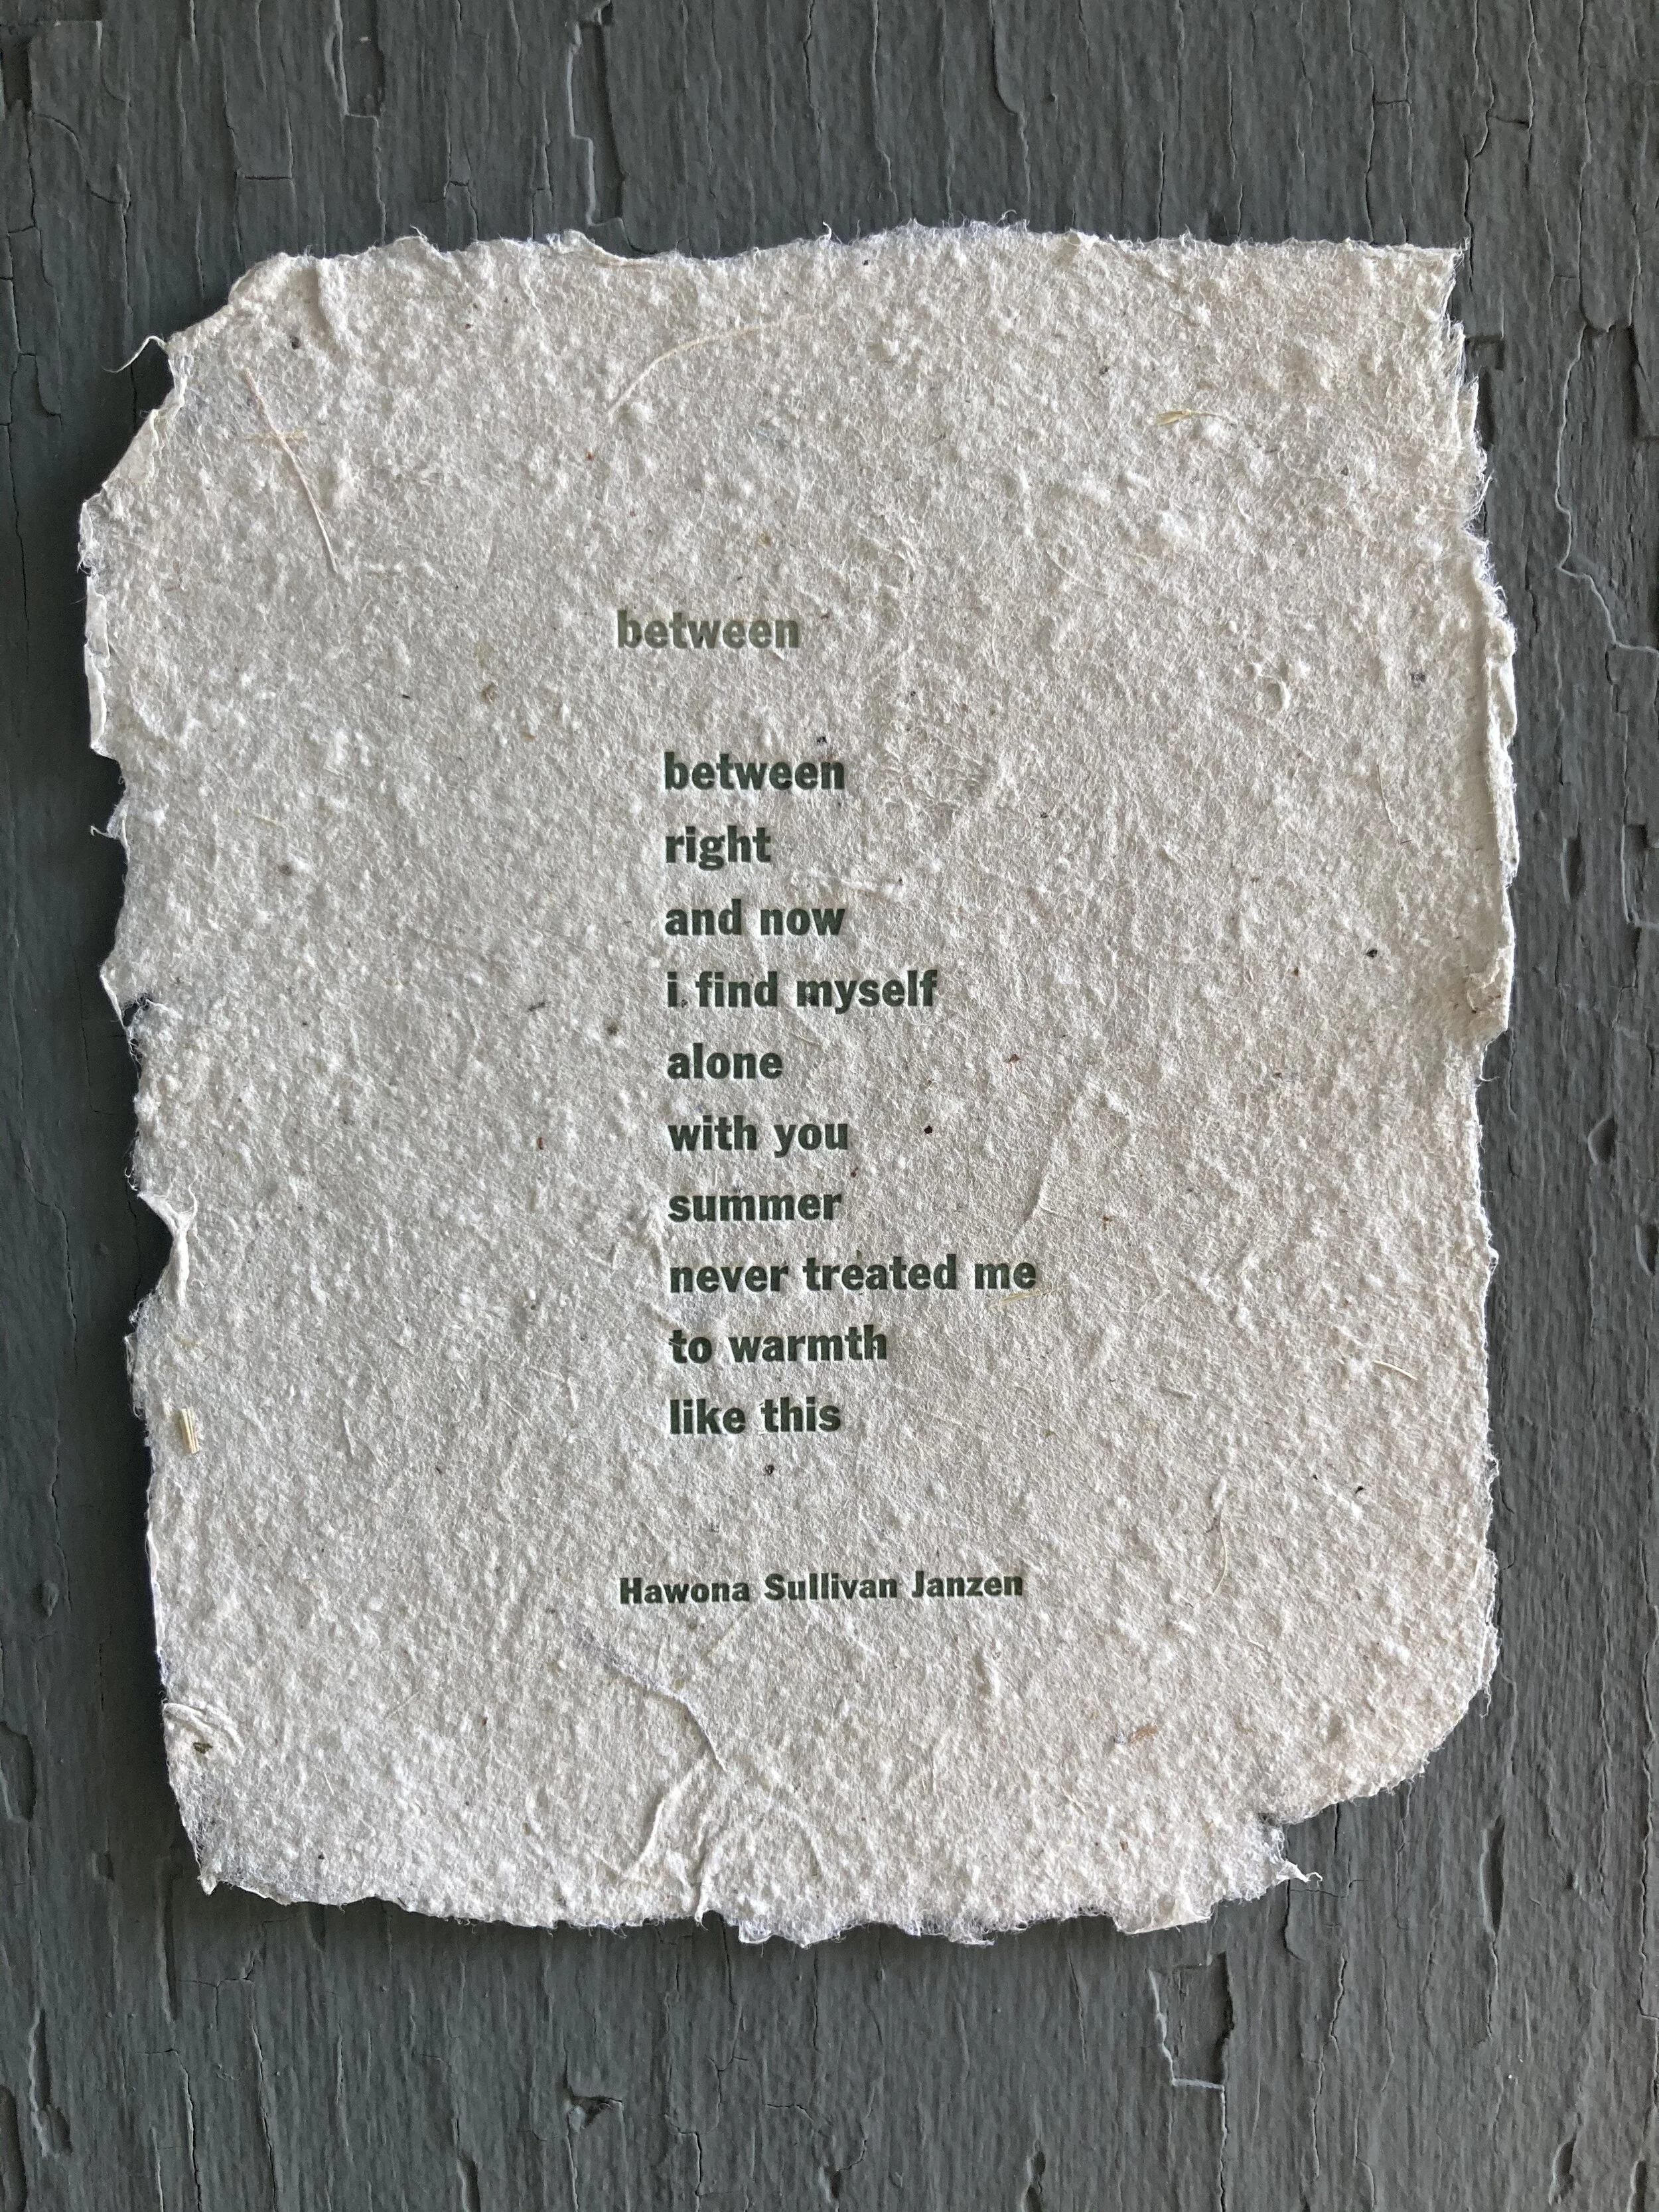 between
between
right
and now
i find myself
alone
with you
summer
never treated me
to warmth
like this
Hawona Sullivan Janzen